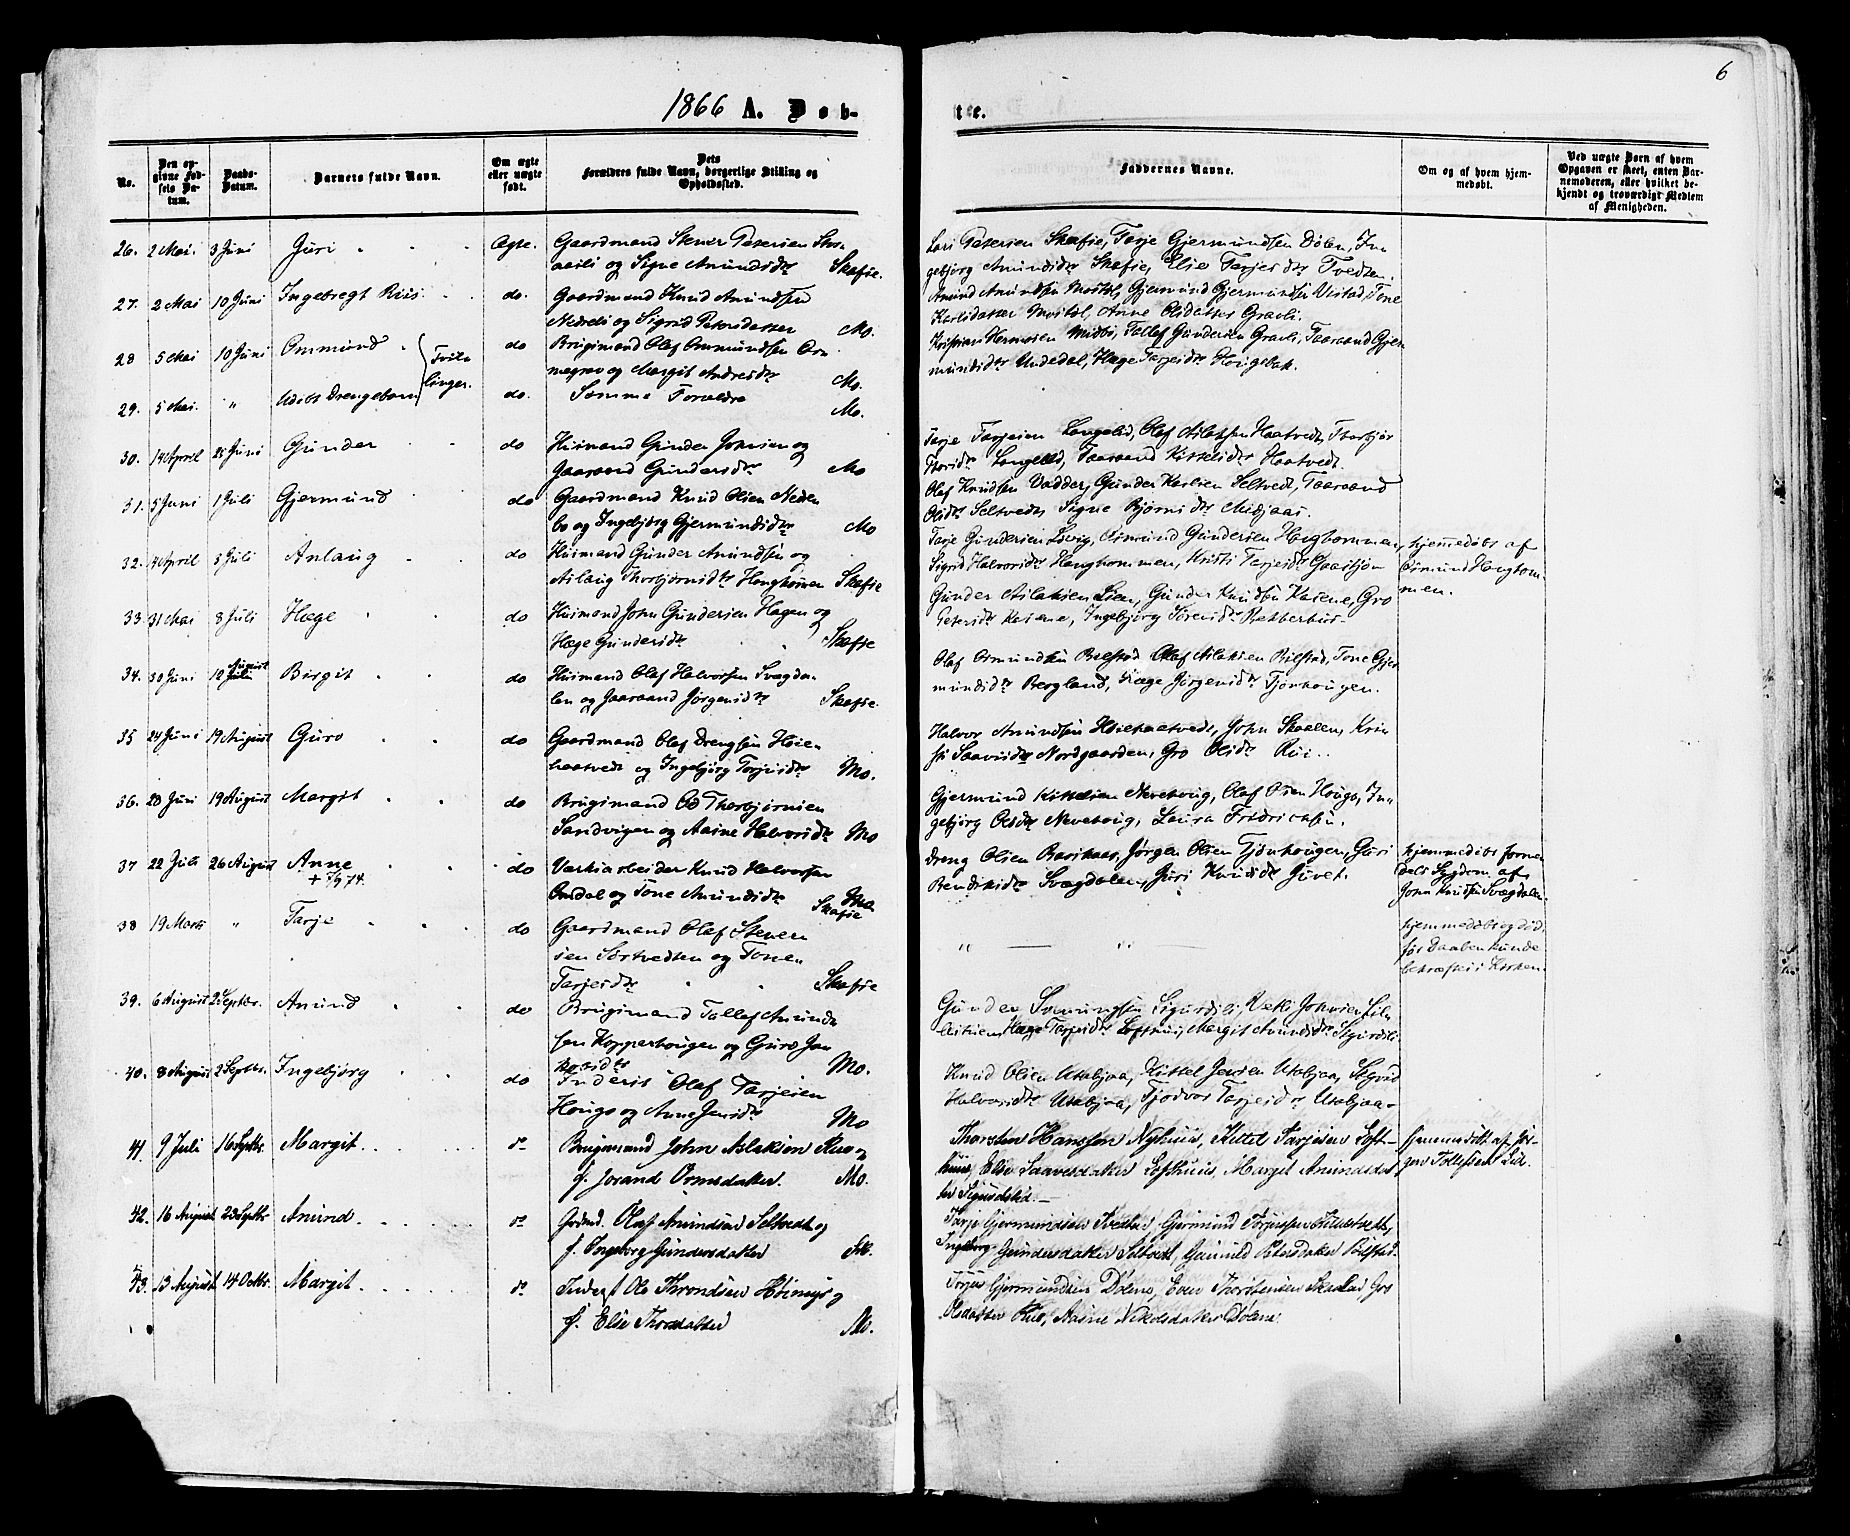 6
1866 A. Døb-
te.
No.
Den opgivne Fødsels Datum.
Daabs-Datum.
Barnets fulde Navn.
Om ægte eller uægte født.
Dets Forældres fulde Navn, borgerlige Stilling og Opholdssted.
Faddernes Navne.
Om og af hvem hjemmedøbt.
Ved uægte Børn af hvem Opgaven er skeet, enten Barnemoderen, eller hvilket bekjendt og troværdigt Medlem af Menigheden.
26. 2 Mai. 3 Juni Juri Ægte. Gaardmand Stener Petersen
og Signe Amundsdtr Skafse.
Petersen Skafse, Tarje Gjermundsen Dølen, In
gebjørg Amundsdtr Skafse, Else Tarjeisdtr Tvedten.
27. 2 Mai 10 Juni Ingebregt Riis do. Gaardmand Knud Amundsen
Nedreli og Sigrid Petersdatter Mo.
Amund Amundsen Gjermund Gjermundsen Tone
Karlsdatter Anne Olsdatter Gravli.
28 5 Mai 10 Juni Ommund Tvil- do Brugsmand Olaf Ommundsen
og Margit Andresdtr Mo.
Kristian Hermosen Midbø, Tallef Gundersen Gravli, Taaraand Gjer
mundsdtr Undedal, Hæge Tarjeisdtr Haugebak.
29. 5 Mai. " Udøbt Drengebarn linger. do. Samme Forældre Mo.
30. 19 April Juni Gunder do Husmand Gunder Johnsen og
Taaraand Gundersdtr Mo
Tarje Tarjeisen Langelid, Olaf Aslaksen Haatvedt, Thorbjør
Langelid, Taaraand Kittelsdtr Haatvedt.
31. 5 Juni 1 Juli Gjermund do Gaardmand Knud Olsen Neden
bø og Ingebjørg Gjermundsdtr Mo
Olaf Knudsen Vadder, Gunder Karlsen Seltvedt, Taaraand
Olsdtr Seltvedt, Signe Bjørnsdtr
32. 4 April 8 Juli Anlaug do Husmand Gunder Amundsen og
Aslaug Thorbjørnsdtr Haughommen Skafse
Tarje Gundersen Løvig, Osmund Gundersen Haughommen,
Sigrid Halvorsdtr Haughommen, Kristi Tarjeisdtr
hjemmedøbt af
Osmund Haughom-
men.
33. 31 Mai 8 Juli Hæge do Husmand John Gundersen Hagen og
Hæge Gundersdtr Skafse
Gunder Aslaksen Lien, Gunder Knudsen Kasene, Gro
Petersdtr Kasene, Ingebjørg
34. 30 Juni 12 August Birgit do Husmand Olaf Halvorsen Svægda-
len og Taaraand Jørgensdtr Skafse.
Olaf Osmundsen Bilstad, Olaf Aslaksen Bilstad, Tone Gjer
mundsdtr Bergland, Hæge Jørgensdtr Tjønhougen.
35 24 Juni 19 August Guro do Gaardmand Olaf Drengsen Høien
haatvedt og Ingebjørg Tarjeisdtr Mo.
Halvor Amundsen Høiehaatvedt, John Skaalen, Kris
ti Saavesdtr Nordgaarden, Gro Olsdtr Rui.
36. 28 Juni 19 August Margit do Brugsmand Od Thorbjørnsen
Sandvigen og Aasne Halvorsdtr Mo
Gjermund Kittelsen Nevestoug, Olaf Olsen Hougo, In-
gebjørg Olsdtr Nevestoug, Laura Fridriksen.
37 22 Juli 26 August Anne do Værksarbeider Knud Halvorsen
+ 7/9 74.
Omdal og Tone Amundsdtr Mo
Skafse
Dreng Olsen Jørgen Olsen Tjønhougen, Guri
Bendiksdtr Svægdalen, Juri Knudsdtr Juvet.
hjemmedøbt formedelst Sygdom af
John Knudsen Svægdalen
38 19 Marts " Tarje do Gaardmand Olaf Stener
sen Sørtvedten og Tone
Tarjeisdtr Skafse
" — " —
hjemmedøbt og død
før Daaben kunde
bekræftes i Kirken.
39. 6 August 2 Septbr. Amund do Brugsmand Tallef Amund
sen Kopperhougen og Guro
Mo.
Gunder Svenungsen Sigurdsli, Vetle Johnsen
Hæge Tarjeisdtr Lofthuus, Margit Amundsdtr Sigurdsli
40. 8 August 2 Septbr. Ingebjørg do Inderst Olaf Tarjeisen
Hougo og Anne Jensdtr Mo
Knud Olsen Utabjaa, Kittel Jensen Utabjaa, Sigrid
Halvorsdtr Utabjaa, Tjodvor Tarjeisdtr Utabjaa.
41. 9 Juli 16 Septbr. Margit do Brugsmand John Aslaksen Rue og
h. Jorand Ormsdatter. Mo.
Thorsten Hansson Nyhuus, Kittel Tarjeisen Loft-
huus, Else Saavesdatter Lofthuus, Margit Amundsdat
ter Sigurdslid.—
hjemmedøbt af Jør-
gen Tollefsen Lid.
42. 16 August 23 Septbr Amund do Grdmd. Olaf Amundsen Seltvedt og
h. Ingeborg Gundersdatter Sk.
Tarje Gjermundsen Tvedten, Gjermund
Ingeborg Gundersdatter Seltvedt, Gunuld Petersdatter Bilstad.
43. 13 August 14 Octbr. Margit do Inderst Ole Throndsen Høimyr og
h. Else Thorsdatter Mo.
Torjus Gjermundsen Dølene, Even Thorstensen Gro
Olsdatter Rue, Aasne Nikolsdatter Dølene.